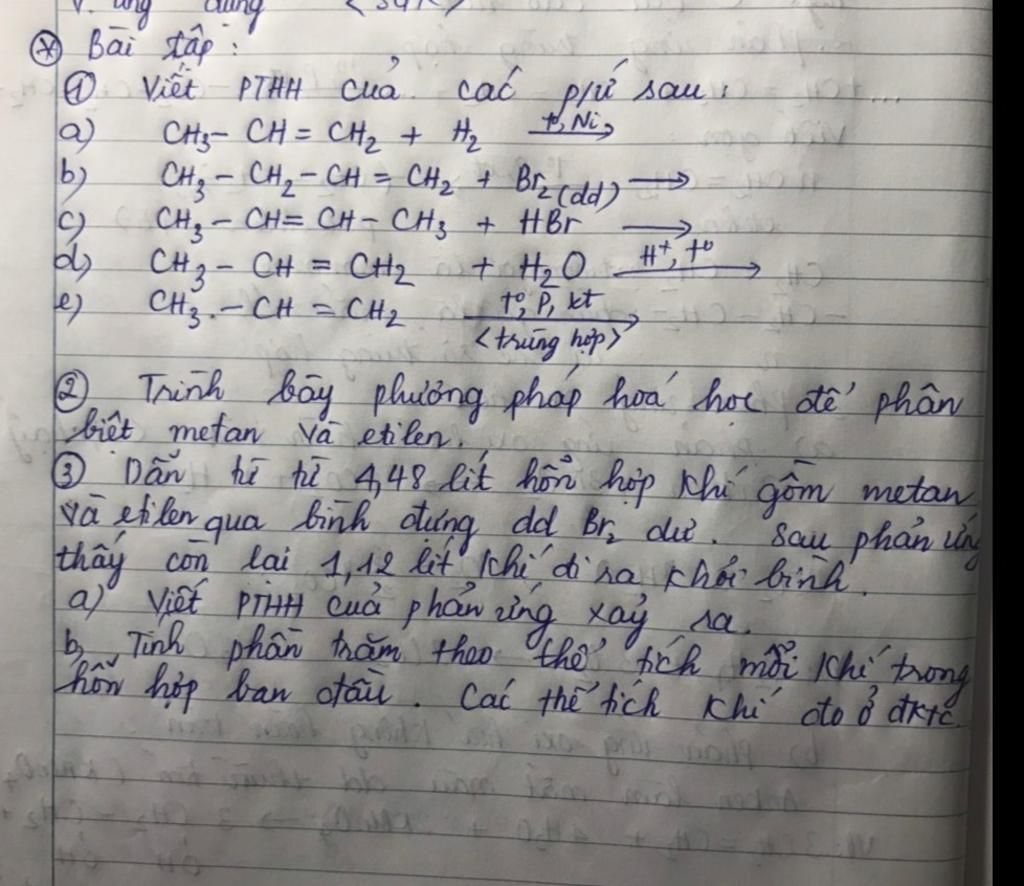 V. ứng dụng <SGK>
Ⓧ Bài tập :
① Viết PTHH của các p/ứ sau :
a) CH₃ - CH = CH₂ + H₂ t°, Ni →
b) CH₃ - CH₂ - CH = CH₂ + Br₂ (dd) →
c) CH₃ - CH = CH - CH₃ + HBr →
d) CH₃ - CH = CH₂ + H₂O H⁺, t° →
e) CH₃ - CH = CH₂ t°, P, kt →
<trùng hợp>
② Trình bày phương pháp hoá học để phân
biệt metan và etilen.
③ Dẫn từ từ 4,48 lít hỗn hợp khí gồm metan
và etilen qua bình đựng dd Br₂ dư. Sau phản ứng
thấy còn lại 1,12 lít khí đi ra khỏi bình.
a) Viết PTHH của phản ứng xảy ra.
b, Tính phần trăm theo thể tích mỗi khí trong
hỗn hợp ban đầu. Các thể tích khí đo ở đktc.